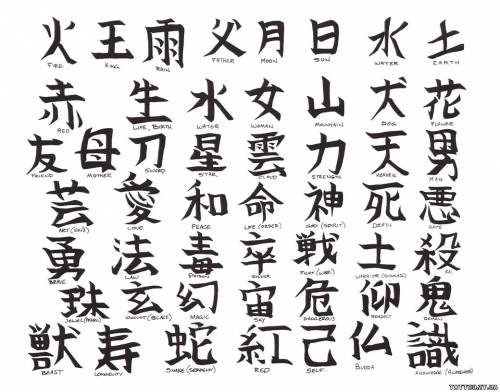 火 王 雨 父 月 日 水 土
FIRE KING RAIN FATHER MOON SUN WATER EARTH
赤 生 水 女 山 犬 花
RED LIFE, BIRTH WATER WOMAN MOUNTAIN DOG FLOWER
友 母 刀 星 雲 力 天 男
FRIEND MOTHER SWORD STAR CLOUD STRENGTH HEAVEN MAN
芸 愛 和 命 神 死 悪
ART (SKILL) LOVE PEACE LIFE (ORDER) GOD (SPIRIT) DEATH HATE
勇 法 毒 卒 戦 士 殺
BRAVE LAW POISON FIGHT (WAR) KILL
珠 玄 幻 宙 危 仰 鬼
JEWEL (PEARL) OCCULT (BLACK) MAGIC SKY DANGEROUS RESPECT DEMON
獣 寿 蛇 紅 己 仏 識
BEAST LONGEVITY SNAKE (SERPENT) RED SELF BUDDA